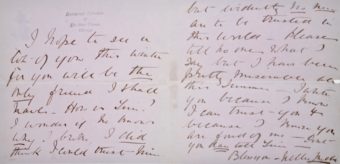 I hope to see a
lot of you this winter
for you will be the
only friend I shall
have. How is Jim?
I wonder if he knows
why I broke I did
think I could trust him
but evidently no man
are to be trusted in
this world - Please
tell no one what I
say but I have been
pretty miserable all
this Summer - I write
you because I know
I can trust you &
because I know you
are fond of me
you